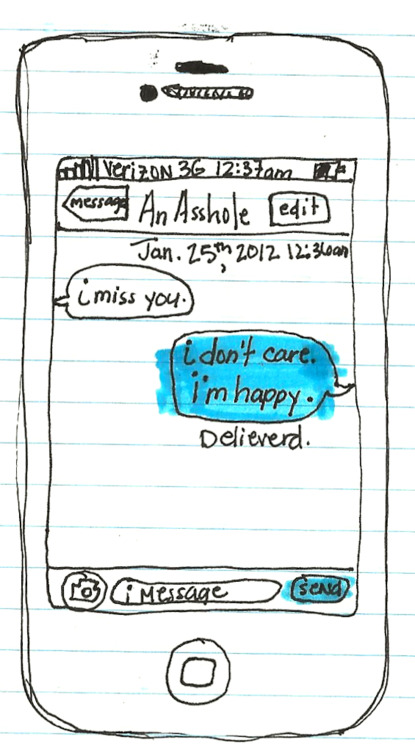 Verizon 3G 12:37am
message An Asshole edit
Jan. 25th, 2012 12:36am
i miss you.
i don't care.
i'm happy.
Delieverd.
iMessage SEND